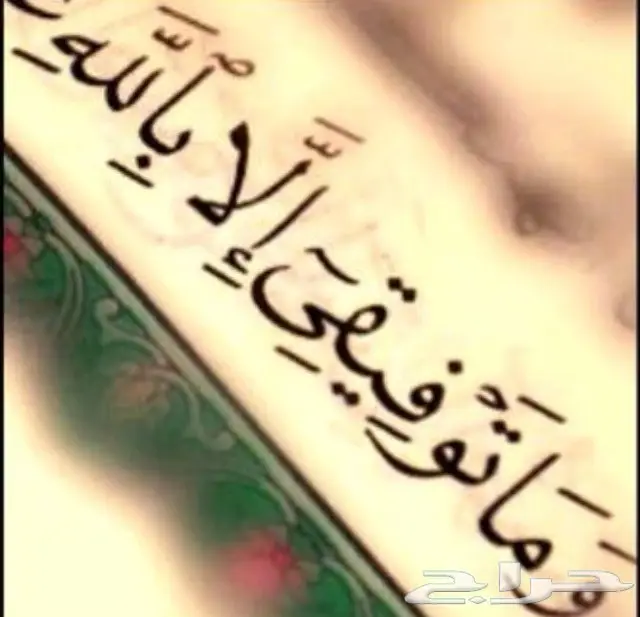 وَمَا تَوْفِيقِىٓ إِلَّا بِٱللَّهِ
حراج